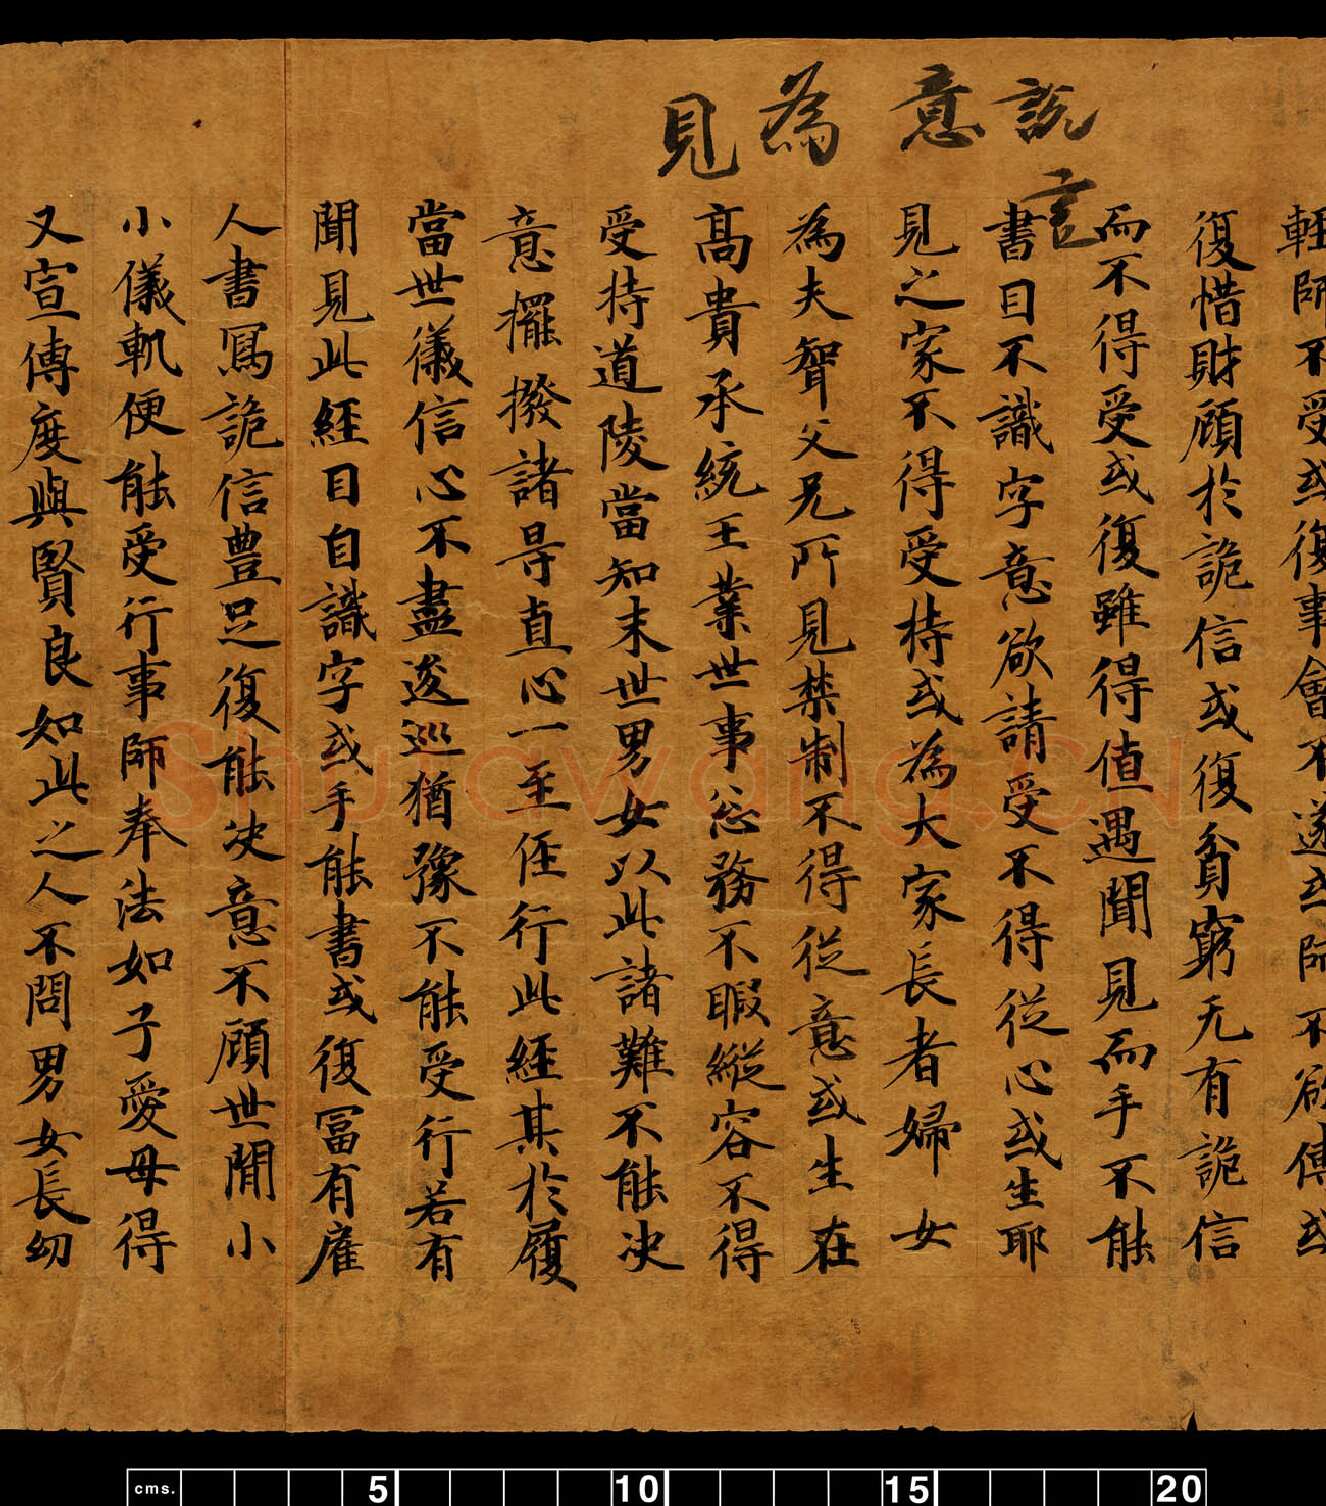 說意為見
言
輕師不受或復事會不遂或師不欲傳或
復惜財顧於詭信或復貧窮无有詭信
而不得受或復雖得值遇聞見而手不能
書目不識字意欲請受不得從心或生耶
見之家不得受持或為大家長者婦女
為夫聟父兄所見禁制不得從意或生在
高貴承統王業世事忩務不暇縱容不得
受持道陵當知末世男女以此諸難不能决
意擺撥諸㝵直心一至侄行此經其於履
當世儀信心不盡逡巡猶豫不能受行若有
聞見此經目自識字或手能書或復冨有雇
人書寫詭信豊足復能决意不顧世間小
小儀軌便能受行事師奉法如子愛母得
又宣傳度與賢良如此之人不問男女長幼
Shufawang.CN
cms. 5 10 15 20